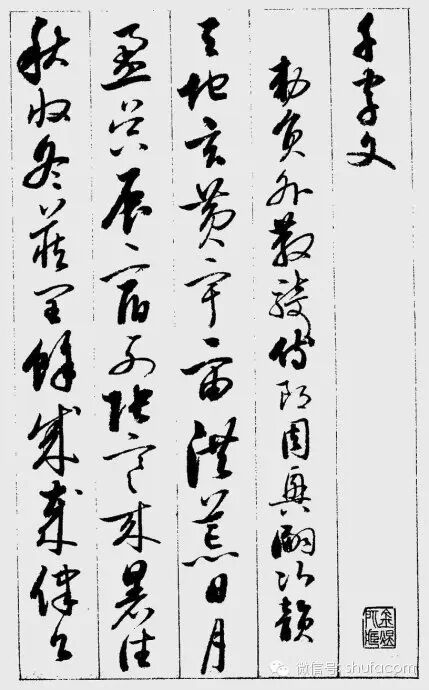 千字文
勅員外散騎侍郎周興嗣次韻
天地玄黄宇宙洪荒日月
盈昃辰宿列張寒来暑往
秋收冬藏閏餘成歲律吕
微信号: shufacom